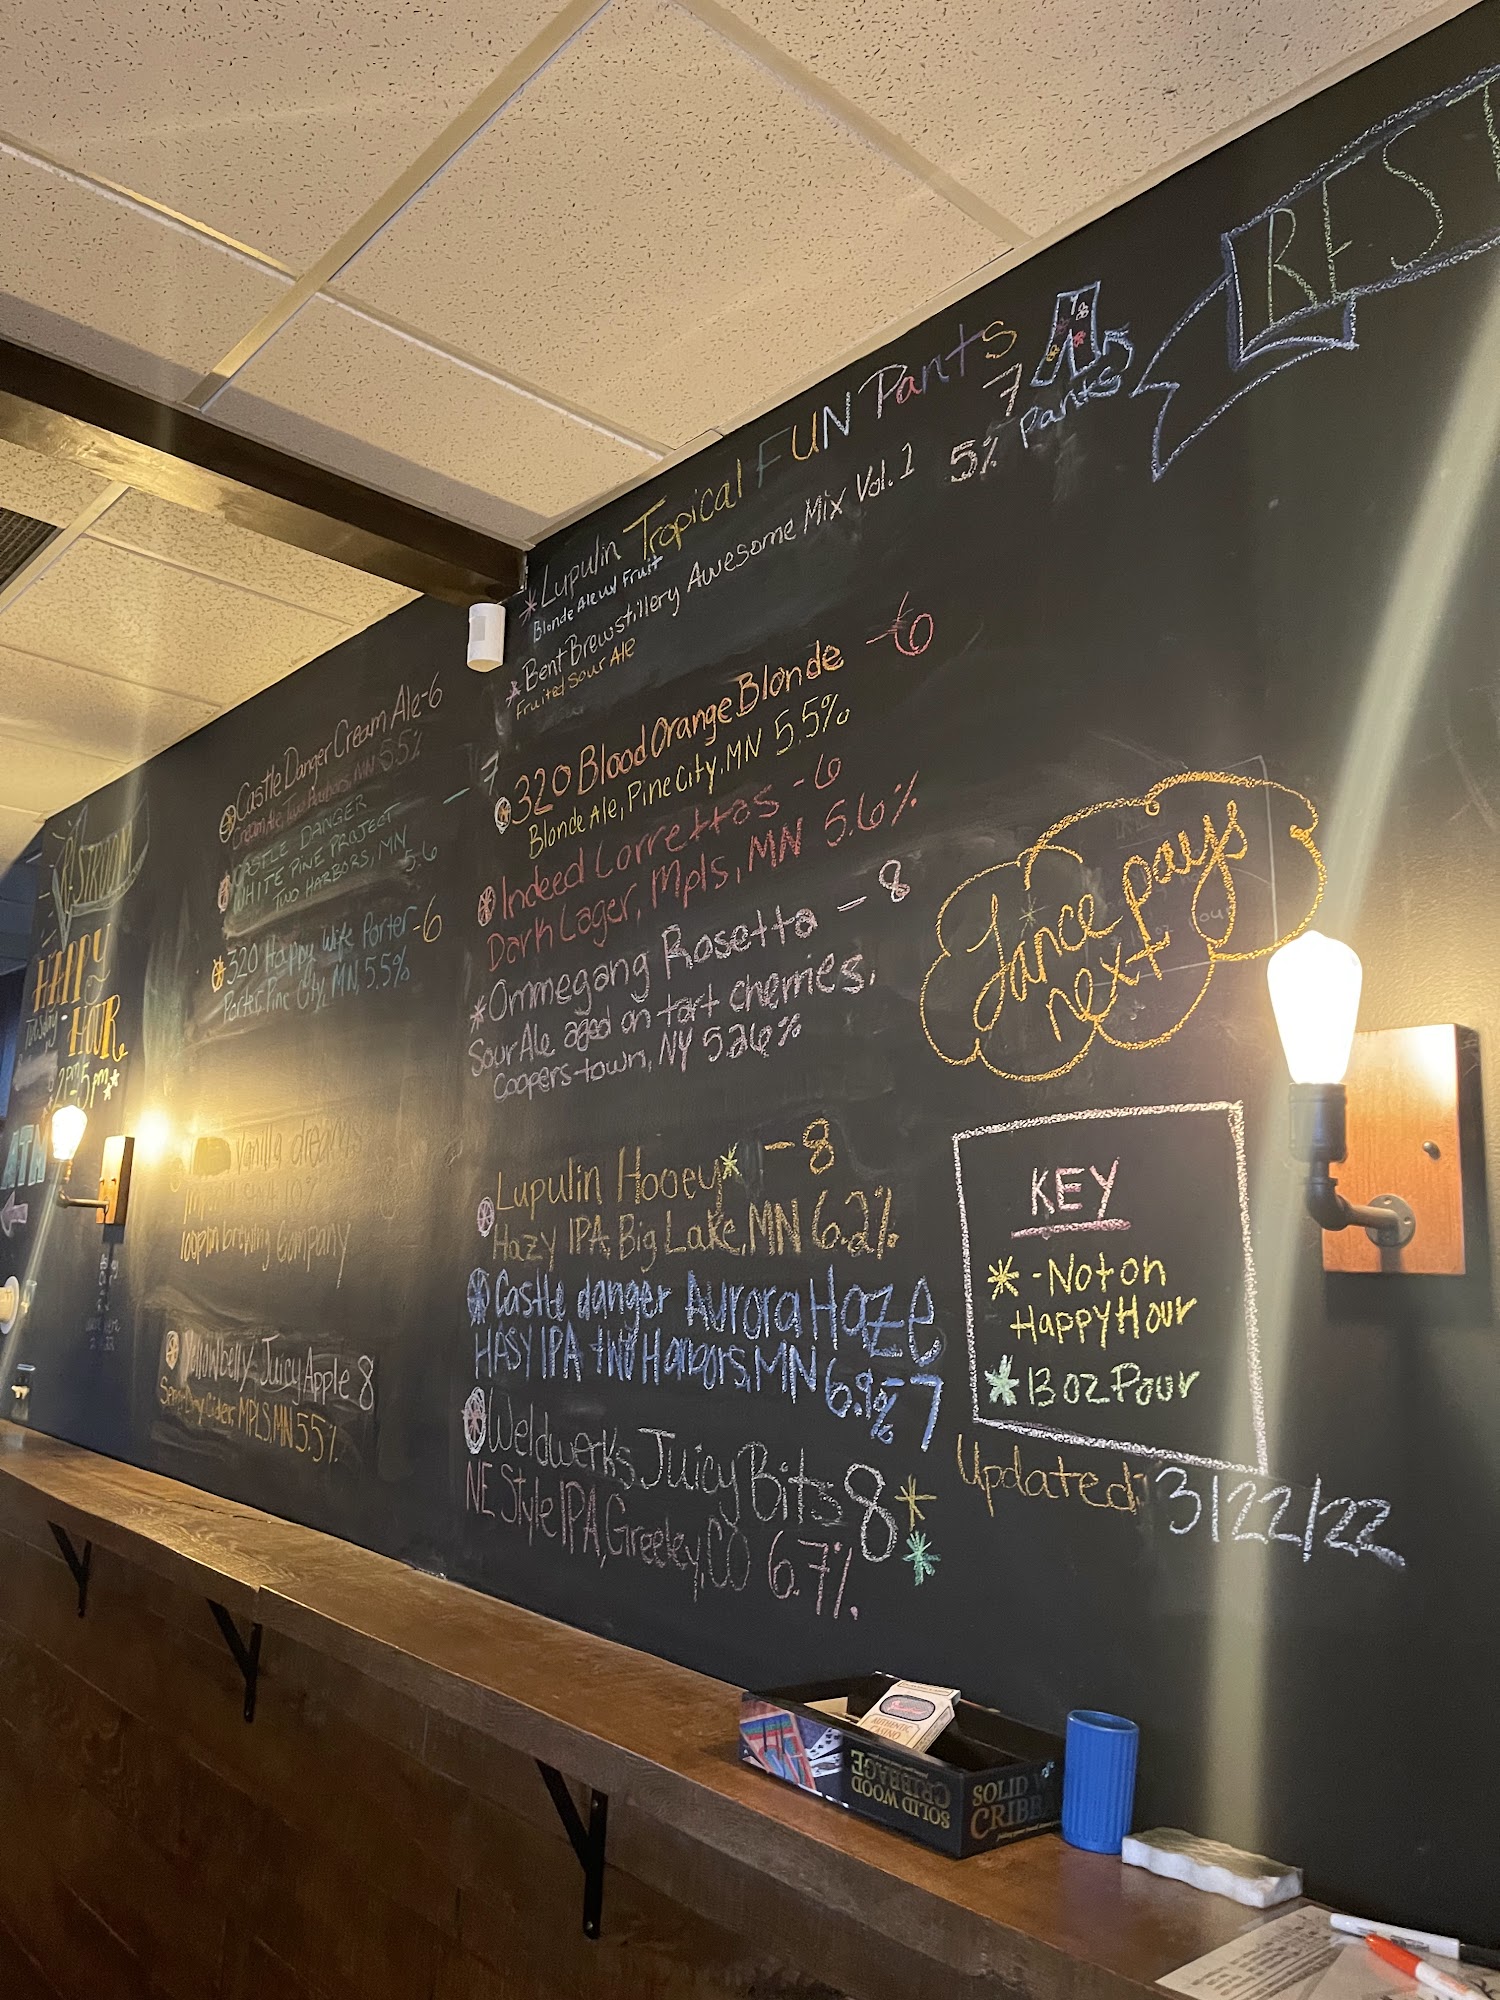 RESTROOM
HAPPY
HOUR
Tuesday -
2pm-5pm
ATM
Castle Danger Cream Ale-6
Cream Ale, Two Harbors MN 5.5%
CASTLE DANGER
WHITE PINE PROJECT - 7
TWO HARBORS, MN 5.6
320 Happy Wife Porter -6
Porter, Pine City, MN, 5.5%
brewing Company
Yellowbelly Juicy Apple 8
Dry Cider, MPLS, MN 5.5%
Lupulin Tropical FUN Pants 7
Blonde Ale w/ Fruit
Pants
Bent Brewstillery Awesome Mix Vol. 1 5%
Fruited Sour Ale
320 Blood Orange Blonde -6
Blonde Ale, Pine City, MN 5.5%
Indeed Lorrettas -6
Dark Lager, Mpls, MN 5.6%
Ommegang Rosetta - 8
Sour Ale aged on tart cherries,
Cooperstown, NY 5.26%
Lupulin Hooey* - 8
Hazy IPA, Big Lake, MN 6.2%
Castle danger Aurora Haze
HASY IPA tWO Harbors, MN 6.9% - 7
Weldwerks Juicy Bits 8
NE Style IPA, Greeley, CO 6.7%
REST
Lance pays
next
KEY
* - Not on
Happy Hour
* 13 oz Pour
Updated: 3/22/22
AUTHENTIC
CASINO
SOLID WOOD
CRIBBAGE
SOLID W
CRIBB